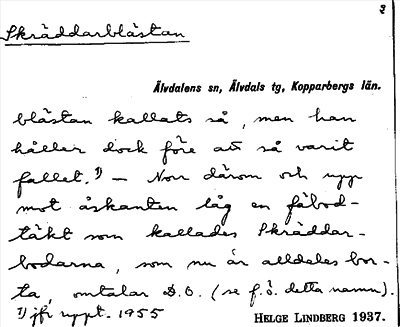 3
Skräddarblästan
Älvdalens sn, Älvdals tg, Kopparbergs län.
blästan kallats så, men han
håller dock före att så varit
fallet.¹) — Norr därom och upp
mot åskanten låg en fäbod-
täkt som kallades Skräddar-
bodarna, som nu är alldeles bor-
ta, omtalar D.O. (se f.ö. detta namn).
¹) jfr uppt. 1955
HELGE LINDBERG 1937.